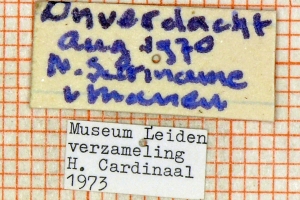 Onverdacht
aug 1970
N. Suriname
v Manen
Museum Leiden
verzameling
H. Cardinaal
1973